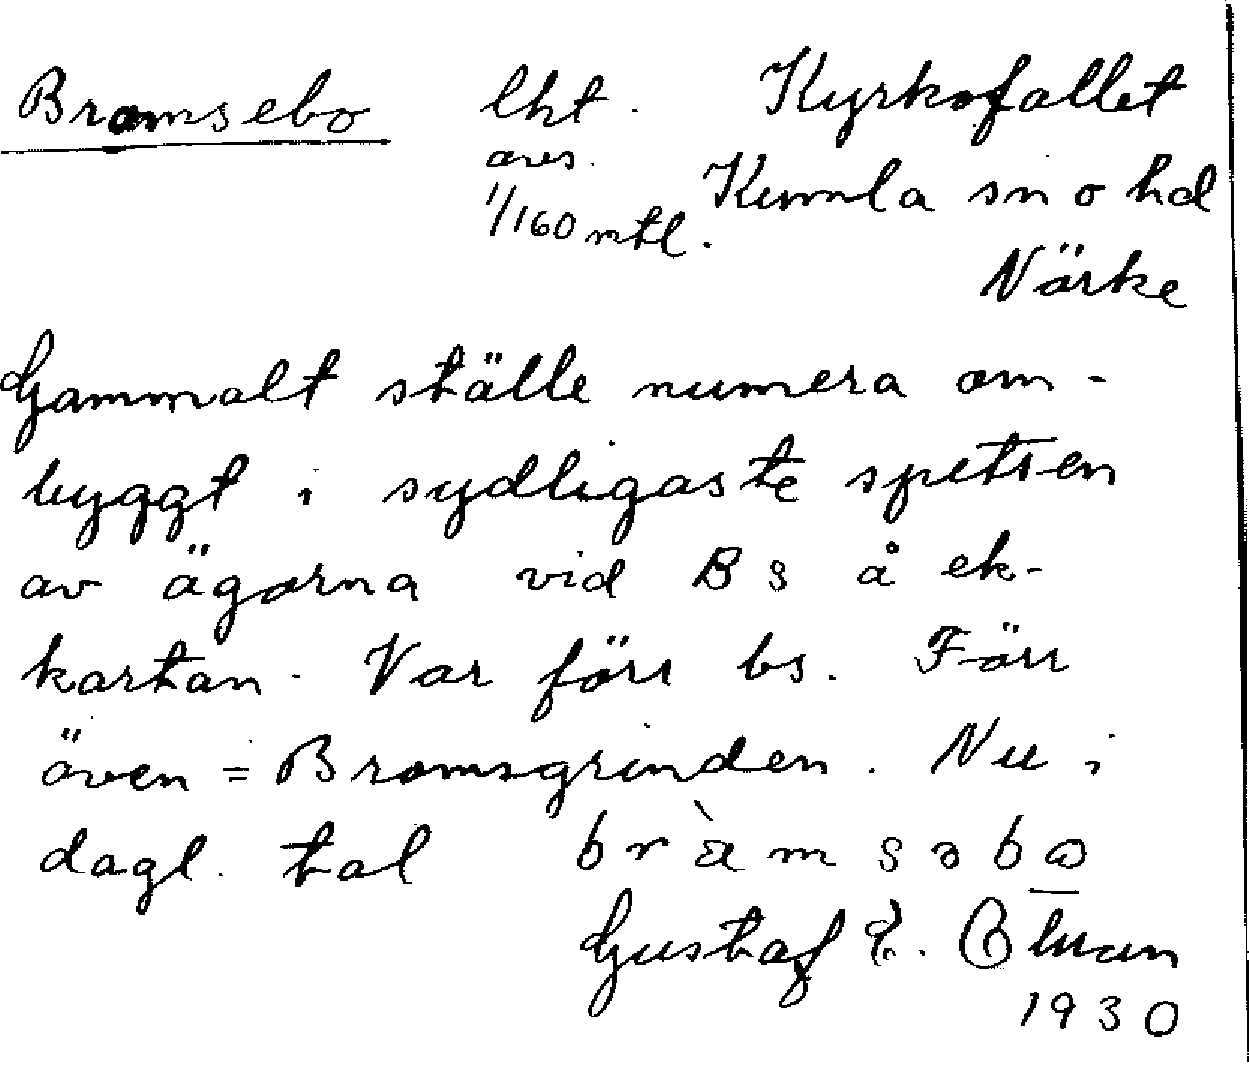 Bramsebo lht. Kyrkofallet
aves.
1/160 mtl. Kumla sn o hd
Närke
Gammalt ställe numera om-
byggt i sydligaste spetsen
av ägorna vid B s å ek-
kartan. Var förr bs. Förr
även = Bramsgrinden. Nu i
dagl. tal bràmsəbω
Gustaf E.
1930